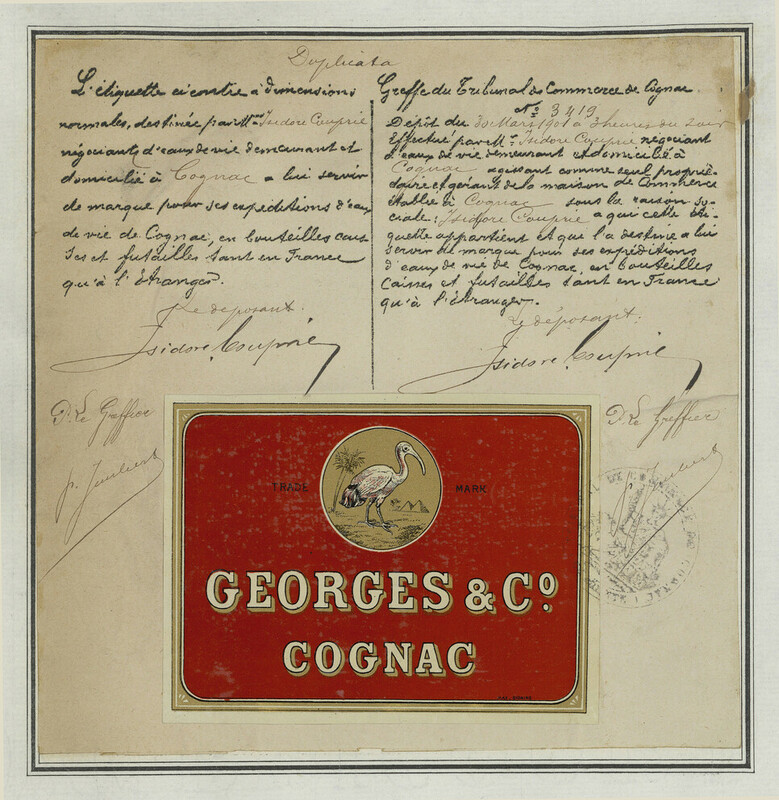 Duplicata
L'étiquette ci contre à dimensions
normales, destinée par Mr Isidore Couprie
négociant d'eaux de vie demeurant et
domicilié à Cognac a lui servir
de marque pour ses expéditions d'eaux
de vie de Cognac, en bouteilles cais
ses et futailles tant en France
qu'à l'étranger.
Le déposant.
Isidore Couprie
P. Le Greffier
Greffe du Tribunal de Commerce de Cognac.
No 3419
Dépôt du 30 Mars 1901 à 3 heures du soir
Effectué par Mr Isidore Couprie négociant
d'eaux de vie demeurant et domicilié à
Cognac agissant comme seul proprié-
taire et gérant de la maison de Commerce
établie à Cognac sous la raison so-
ciale: Isidore Couprie a qui cette éti-
quette appartient et que l'a destinée a lui
servir de marque pour ses expéditions
d'eaux de vie de Cognac, en bouteilles
caisses et futailles tant en France
qu'à l'étranger.
Le déposant:
Isidore Couprie
P. Le Greffier
TRADE MARK
GEORGES & Co.
COGNAC